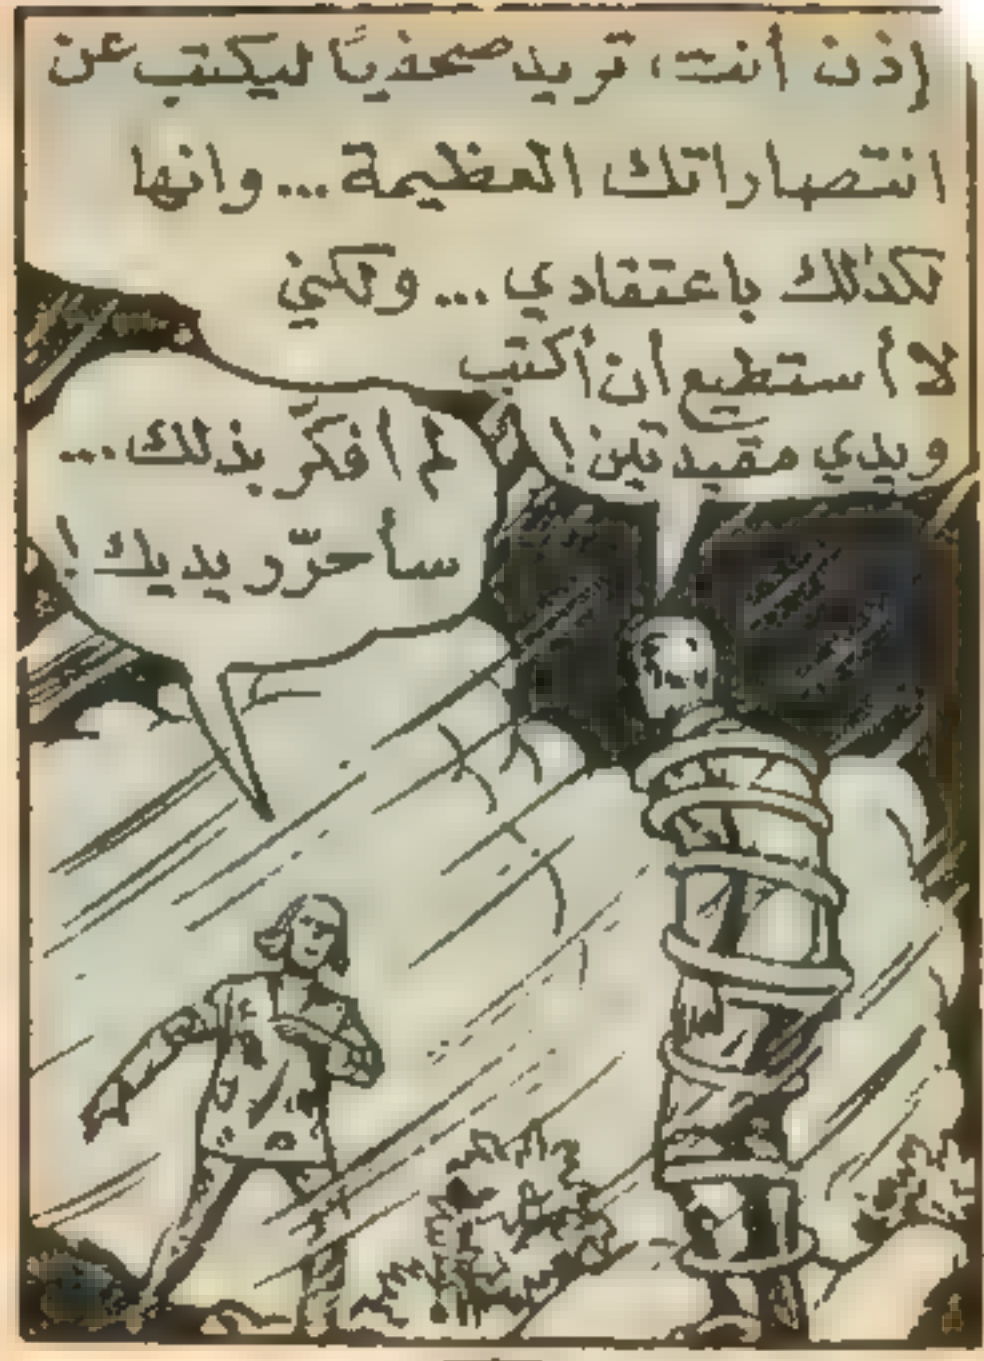 إذن أنت، تريد صحفيًا ليكتب عن
انتصاراتك العظيمة... وانها
لكذلك باعتقادي... ولكني
لا أستطيع أن أكتب
ويدي مقيدتين!
لم أفكّر بذلك...
سأحرّر يديك!